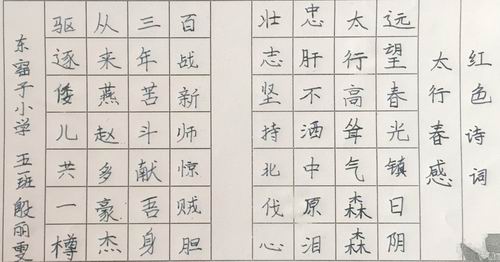 红色诗词
太行春感
远望春光镇日阴
太行高耸气森森
忠肝不洒中原泪
壮志坚持北伐心
百战新师惊贼胆
三年苦斗献吾身
从来燕赵多豪杰
驱逐倭儿共一樽
东窑子小学 五班 殷丽雯